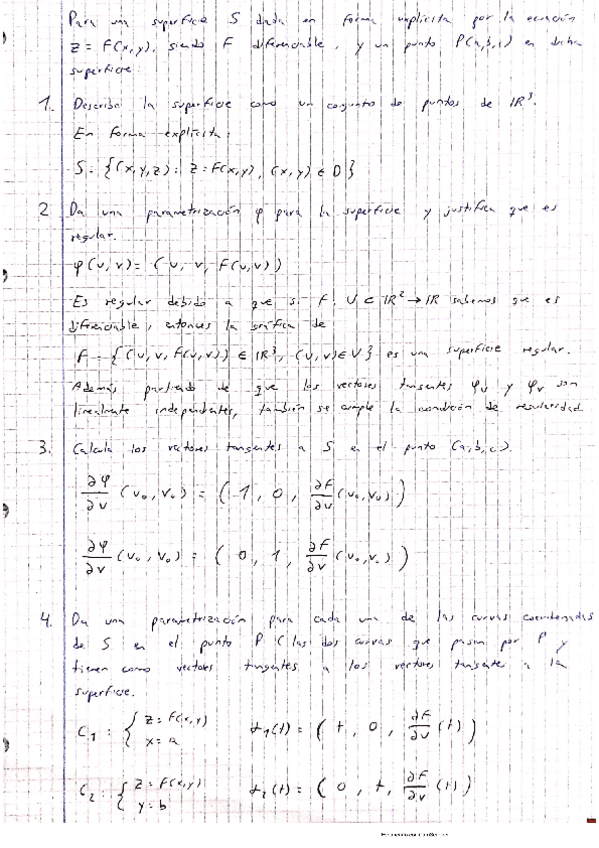 Para una superficie S dada en forma explícita por la ecuación
z = F(x,y), siendo F diferenciable, y un punto P(a,b,c) en dicha
superficie:
1. Describe la superficie como un conjunto de puntos de IR³.
En forma explícita:
S = {(x,y,z): z = F(x,y), (x,y) ∈ D}
2 Da una parametrización φ para la superficie y justifica que es
regular.
φ(u,v) = (u, v, F(u,v))
Es regular debido a que si F: U ⊂ IR² → IR sabemos que es
diferenciable, entonces la gráfica de
F = {(u,v, F(u,v)) ∈ IR³, (u,v) ∈ U} es una superficie regular.
Además, partiendo de que los vectores tangentes φu y φv son
linealmente independientes, también se cumple la condición de regularidad
3. Calcula los vectores tangentes a S en el punto (a,b,c).
∂φ/∂u (u₀,v₀) = (1, 0, ∂F/∂u (u₀,v₀))
∂φ/∂v (u₀,v₀) = (0, 1, ∂F/∂v (u₀,v₀))
4. Da una parametrización para cada una de las curvas coordenadas
de S en el punto P (las dos curvas que pasan por P y
tienen como vectores tangentes a los vectores tangentes a la
superficie.
C₁: { z = F(x,y) x = a (t) = (t, 0, ∂F/∂u (t))
C₂: { z = F(x,y) y = b (t) = (0, t, ∂F/∂v (t))